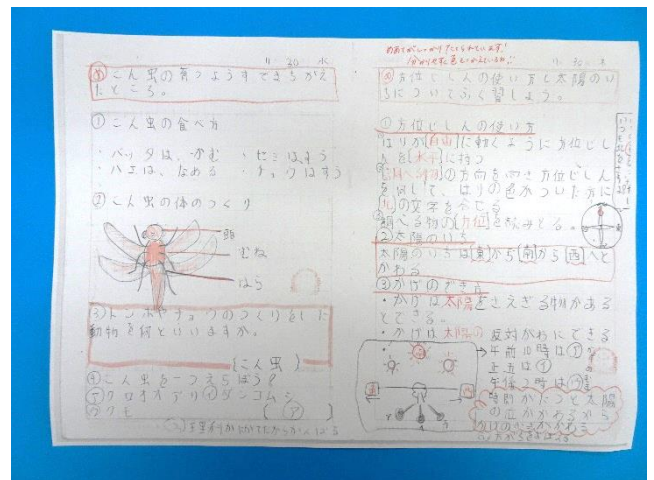 30 水
こん虫の育つようすでまちがえ
たところ。
①こん虫の食べ方
・バッタは、かむ ・セミはすう
・ハエは、なめる ・チョウはすう
②こん虫の体のつくり
頭
むね
はら
③トンボやチョウのつくりをした
動物を何といいますか。
(こん虫)
④こん虫を一つえらぼう。
⑦クロオオアリ ①ダンゴムシ
クモ (ア)
めあてがしっかりたてられています！
30
方位じしんの使い方と太陽のい
ちについてふく習しよう。
①方位じしんの使い方
はりが自由に動くように方位じし
んを水平に持つ
調べるものの方向を向き方位じしん
を回して、はりの色がついた方に
北の文字を合せる
調べる物の方位を読みとる。
②太陽のいち
太陽のいちは東から南から西へと
かわる
③かげのでき方
・かげは太陽をさえぎる物がある
とできる。
・かげは太陽の反対がわにできる
→午前10時は
正午は
午後2時は
時間がたつと太陽
の位がかわるから
かげのむきがかわる